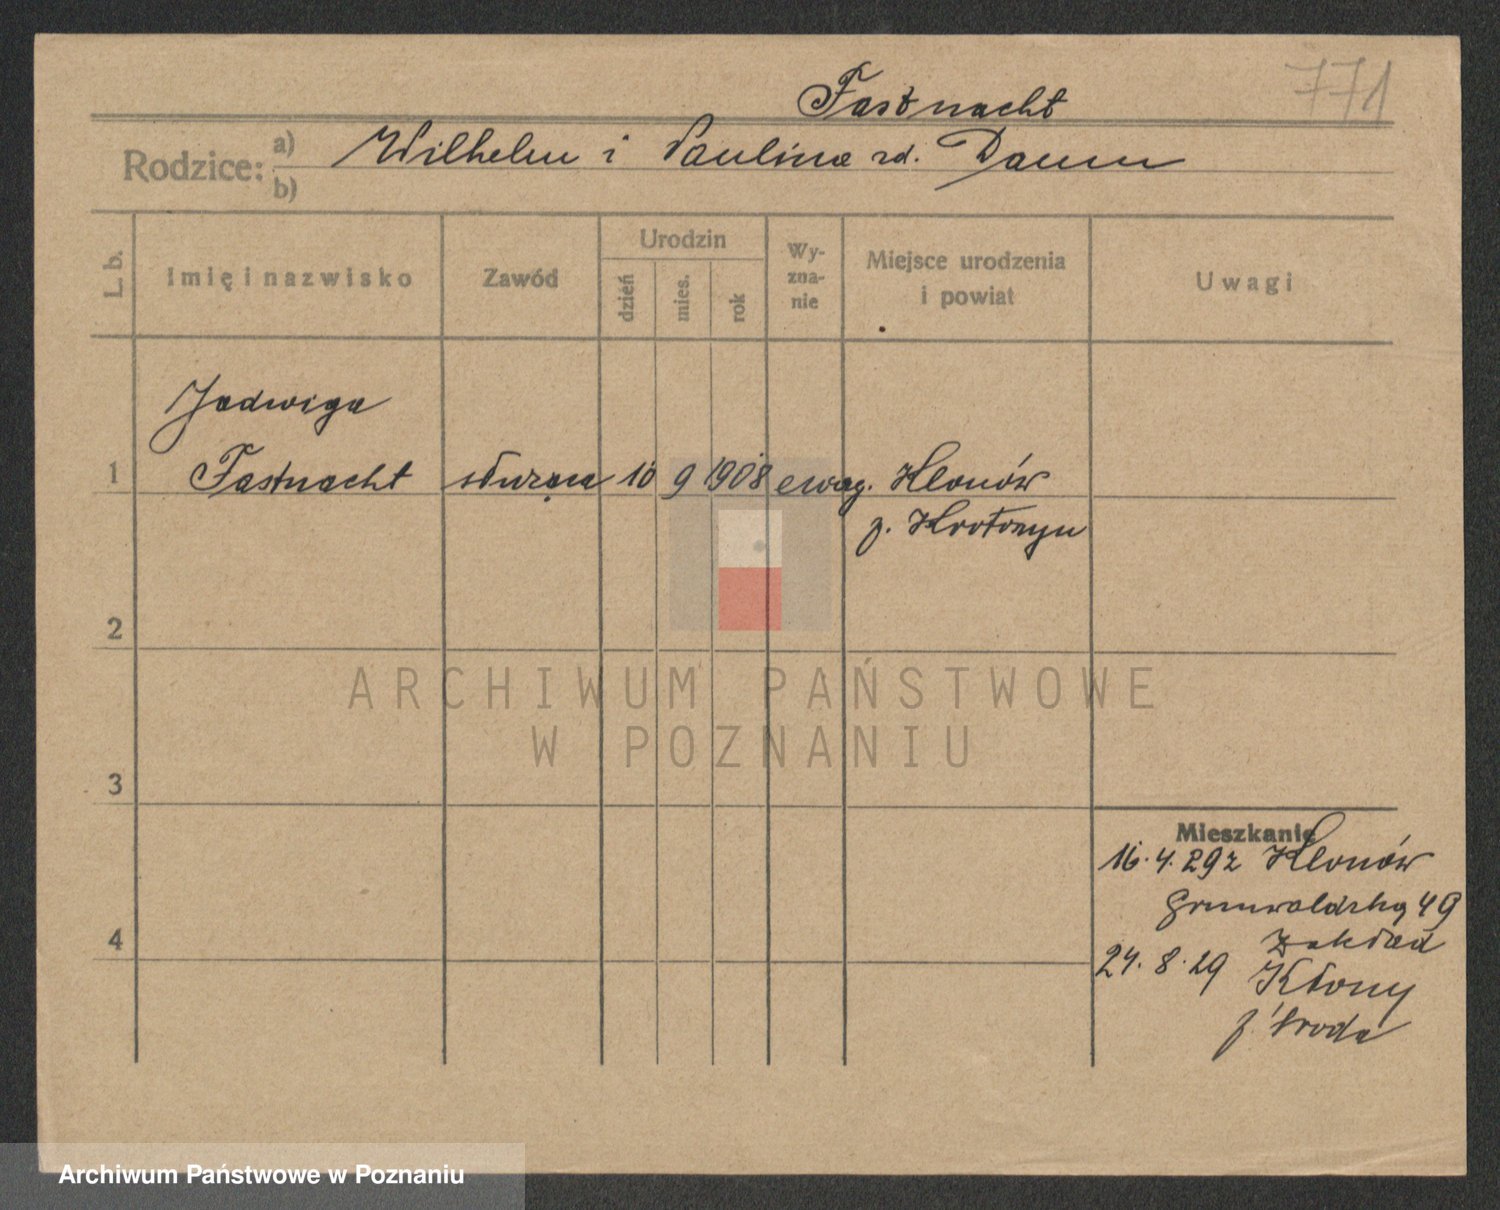 771
Fastnacht
Rodzice: a) Wilhelm i Paulina rd. Daum
b)
L. b.
Imię i nazwisko
Zawód
Urodzin
dzień
mies.
rok
Wy-
zna-
nie
Miejsce urodzenia
i powiat
Uwagi
Jadwiga
1 Fastnacht służąca 10 9 1908 ewag. Klonów
p. Krotoszyn
2
ARCHIWUM PAŃSTWOWE
W POZNANIU
3
Mieszkanie
16.4.29 z Klonów
Grunwaldzka 49
zakład
4
24.8.29 Kłony
p. Środa
Archiwum Państwowe w Poznaniu